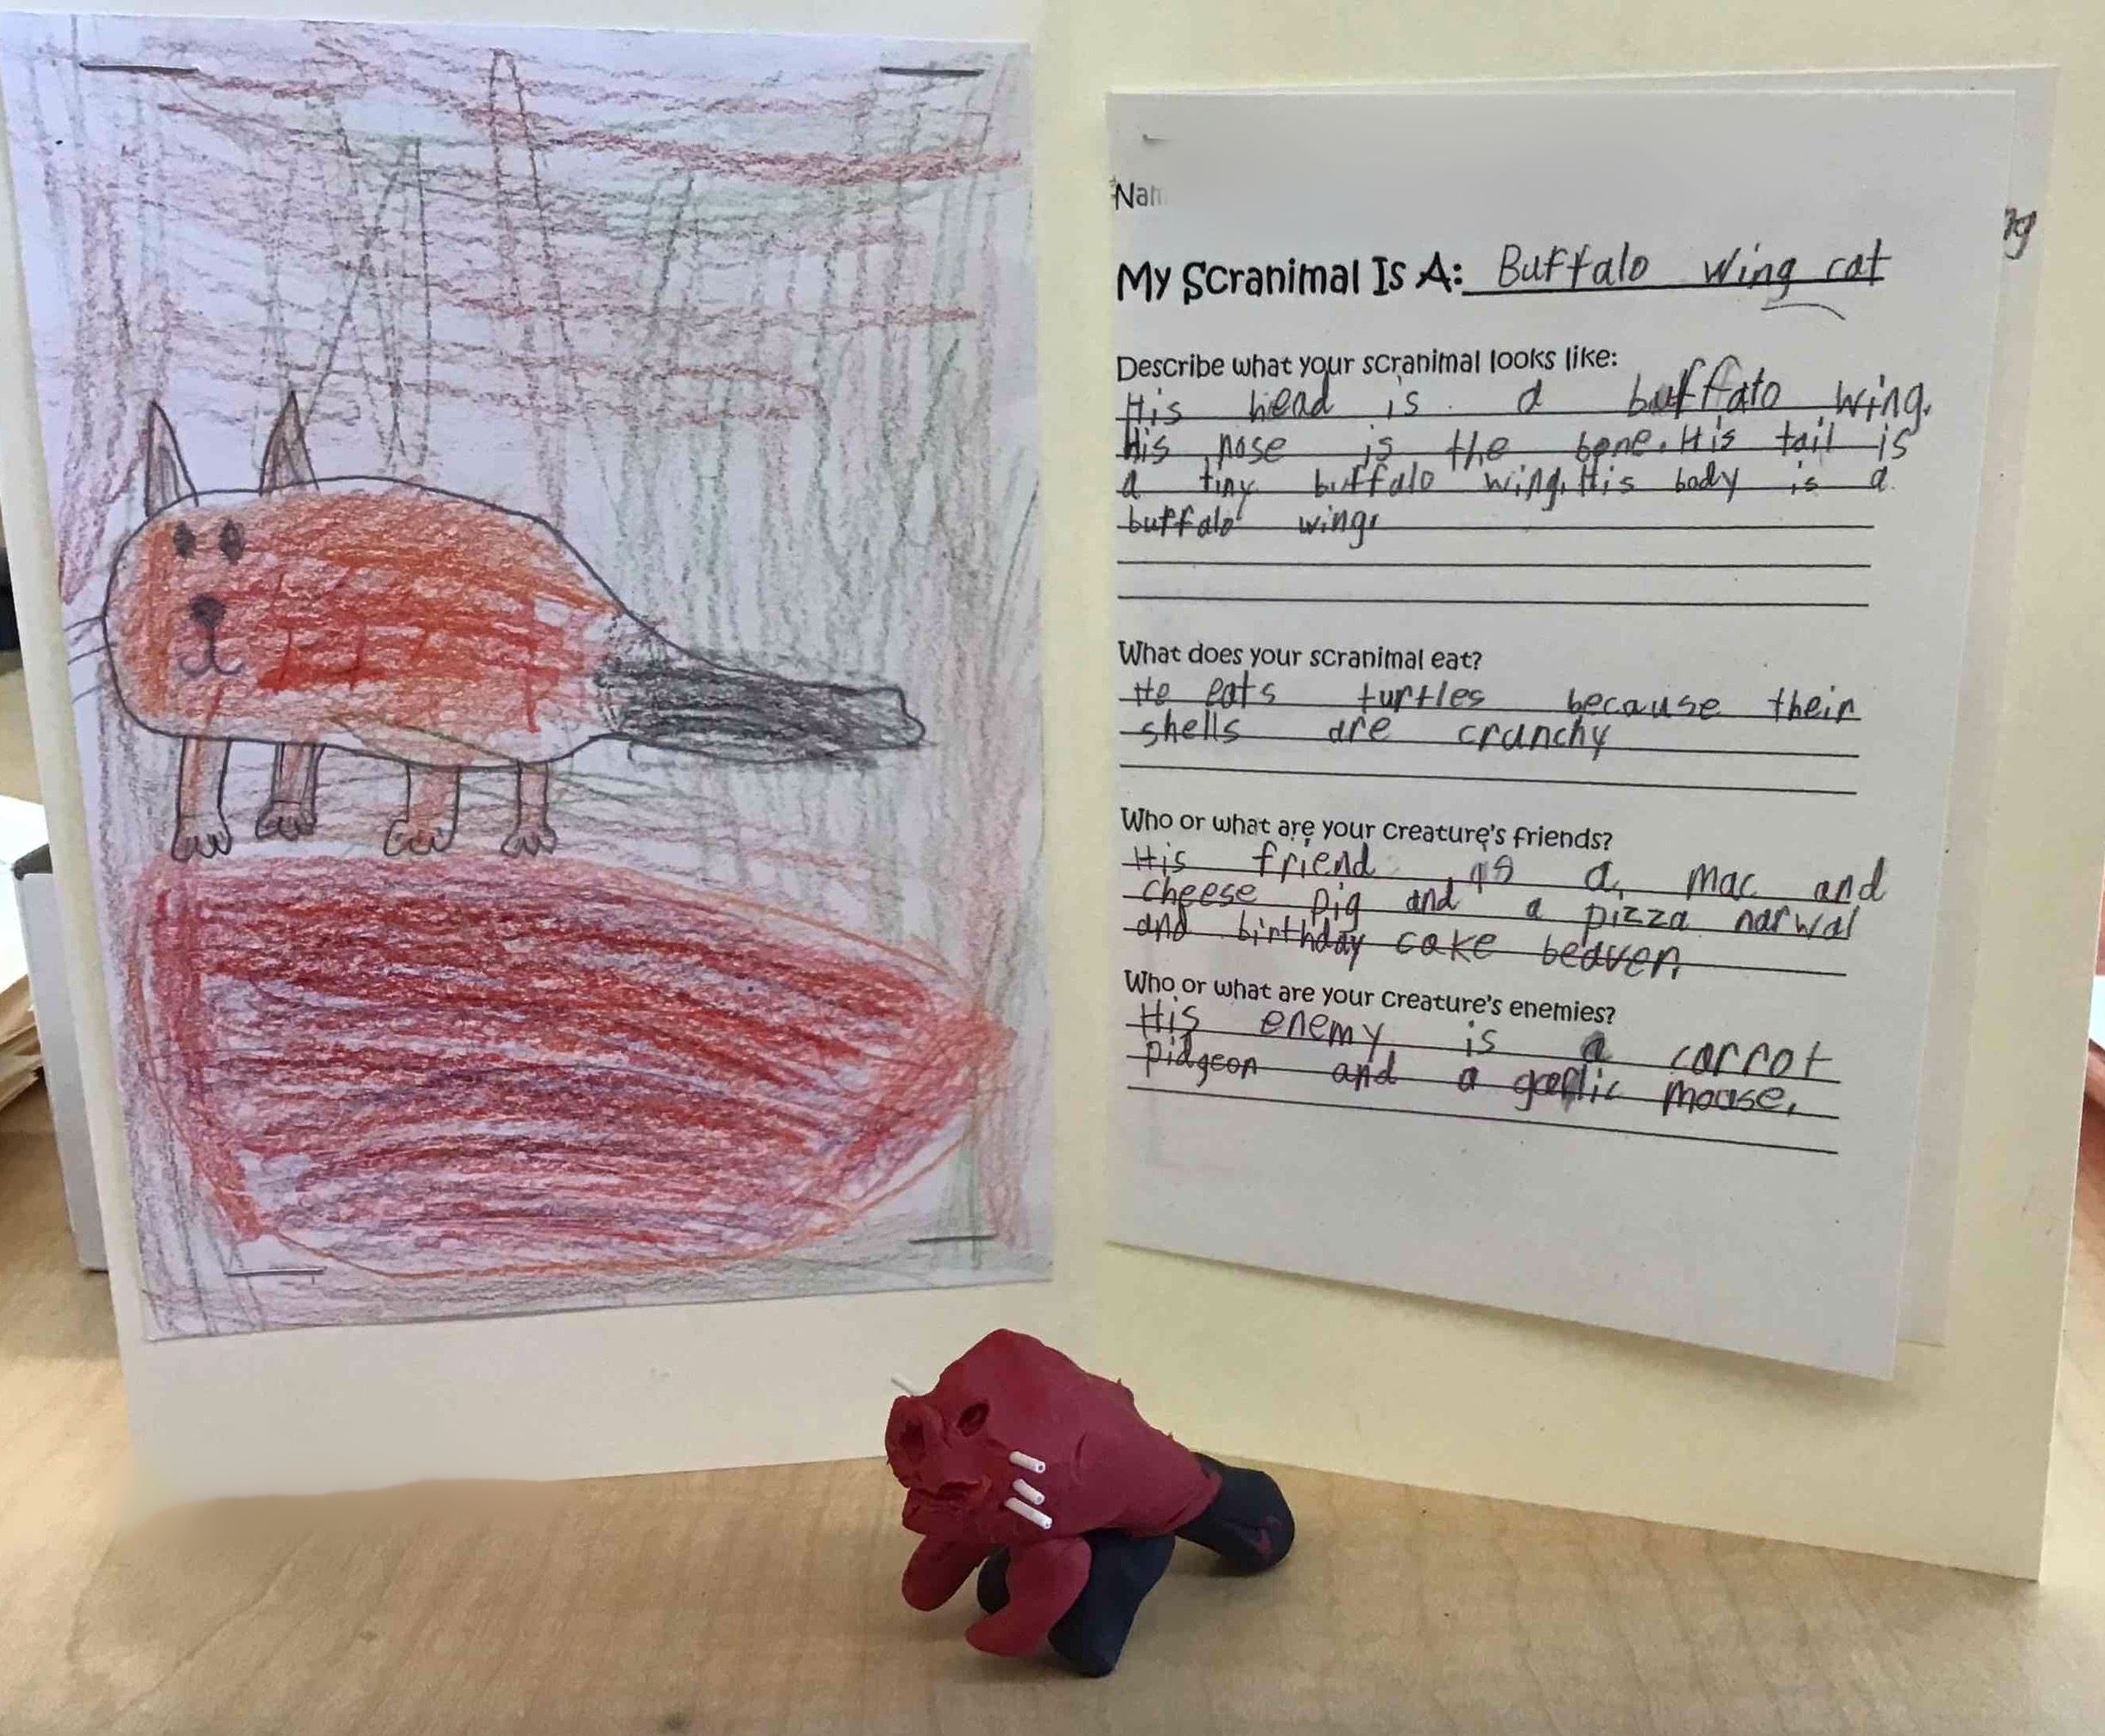 Nam
My Scranimal Is A: Buffalo wing cat
Describe what your scranimal looks like:
His head is a buffalo wing.
His nose is the bone. His tail is
a tiny buffalo wing. His body is a
buffalo wing.
What does your scranimal eat?
He eats turtles because their
shells are crunchy
Who or what are your creature's friends?
His friend is a mac and
cheese pig and a pizza narwal
and birthday cake beaver.
Who or what are your creature's enemies?
His enemy is a carrot
pidgeon and a garlic mouse.